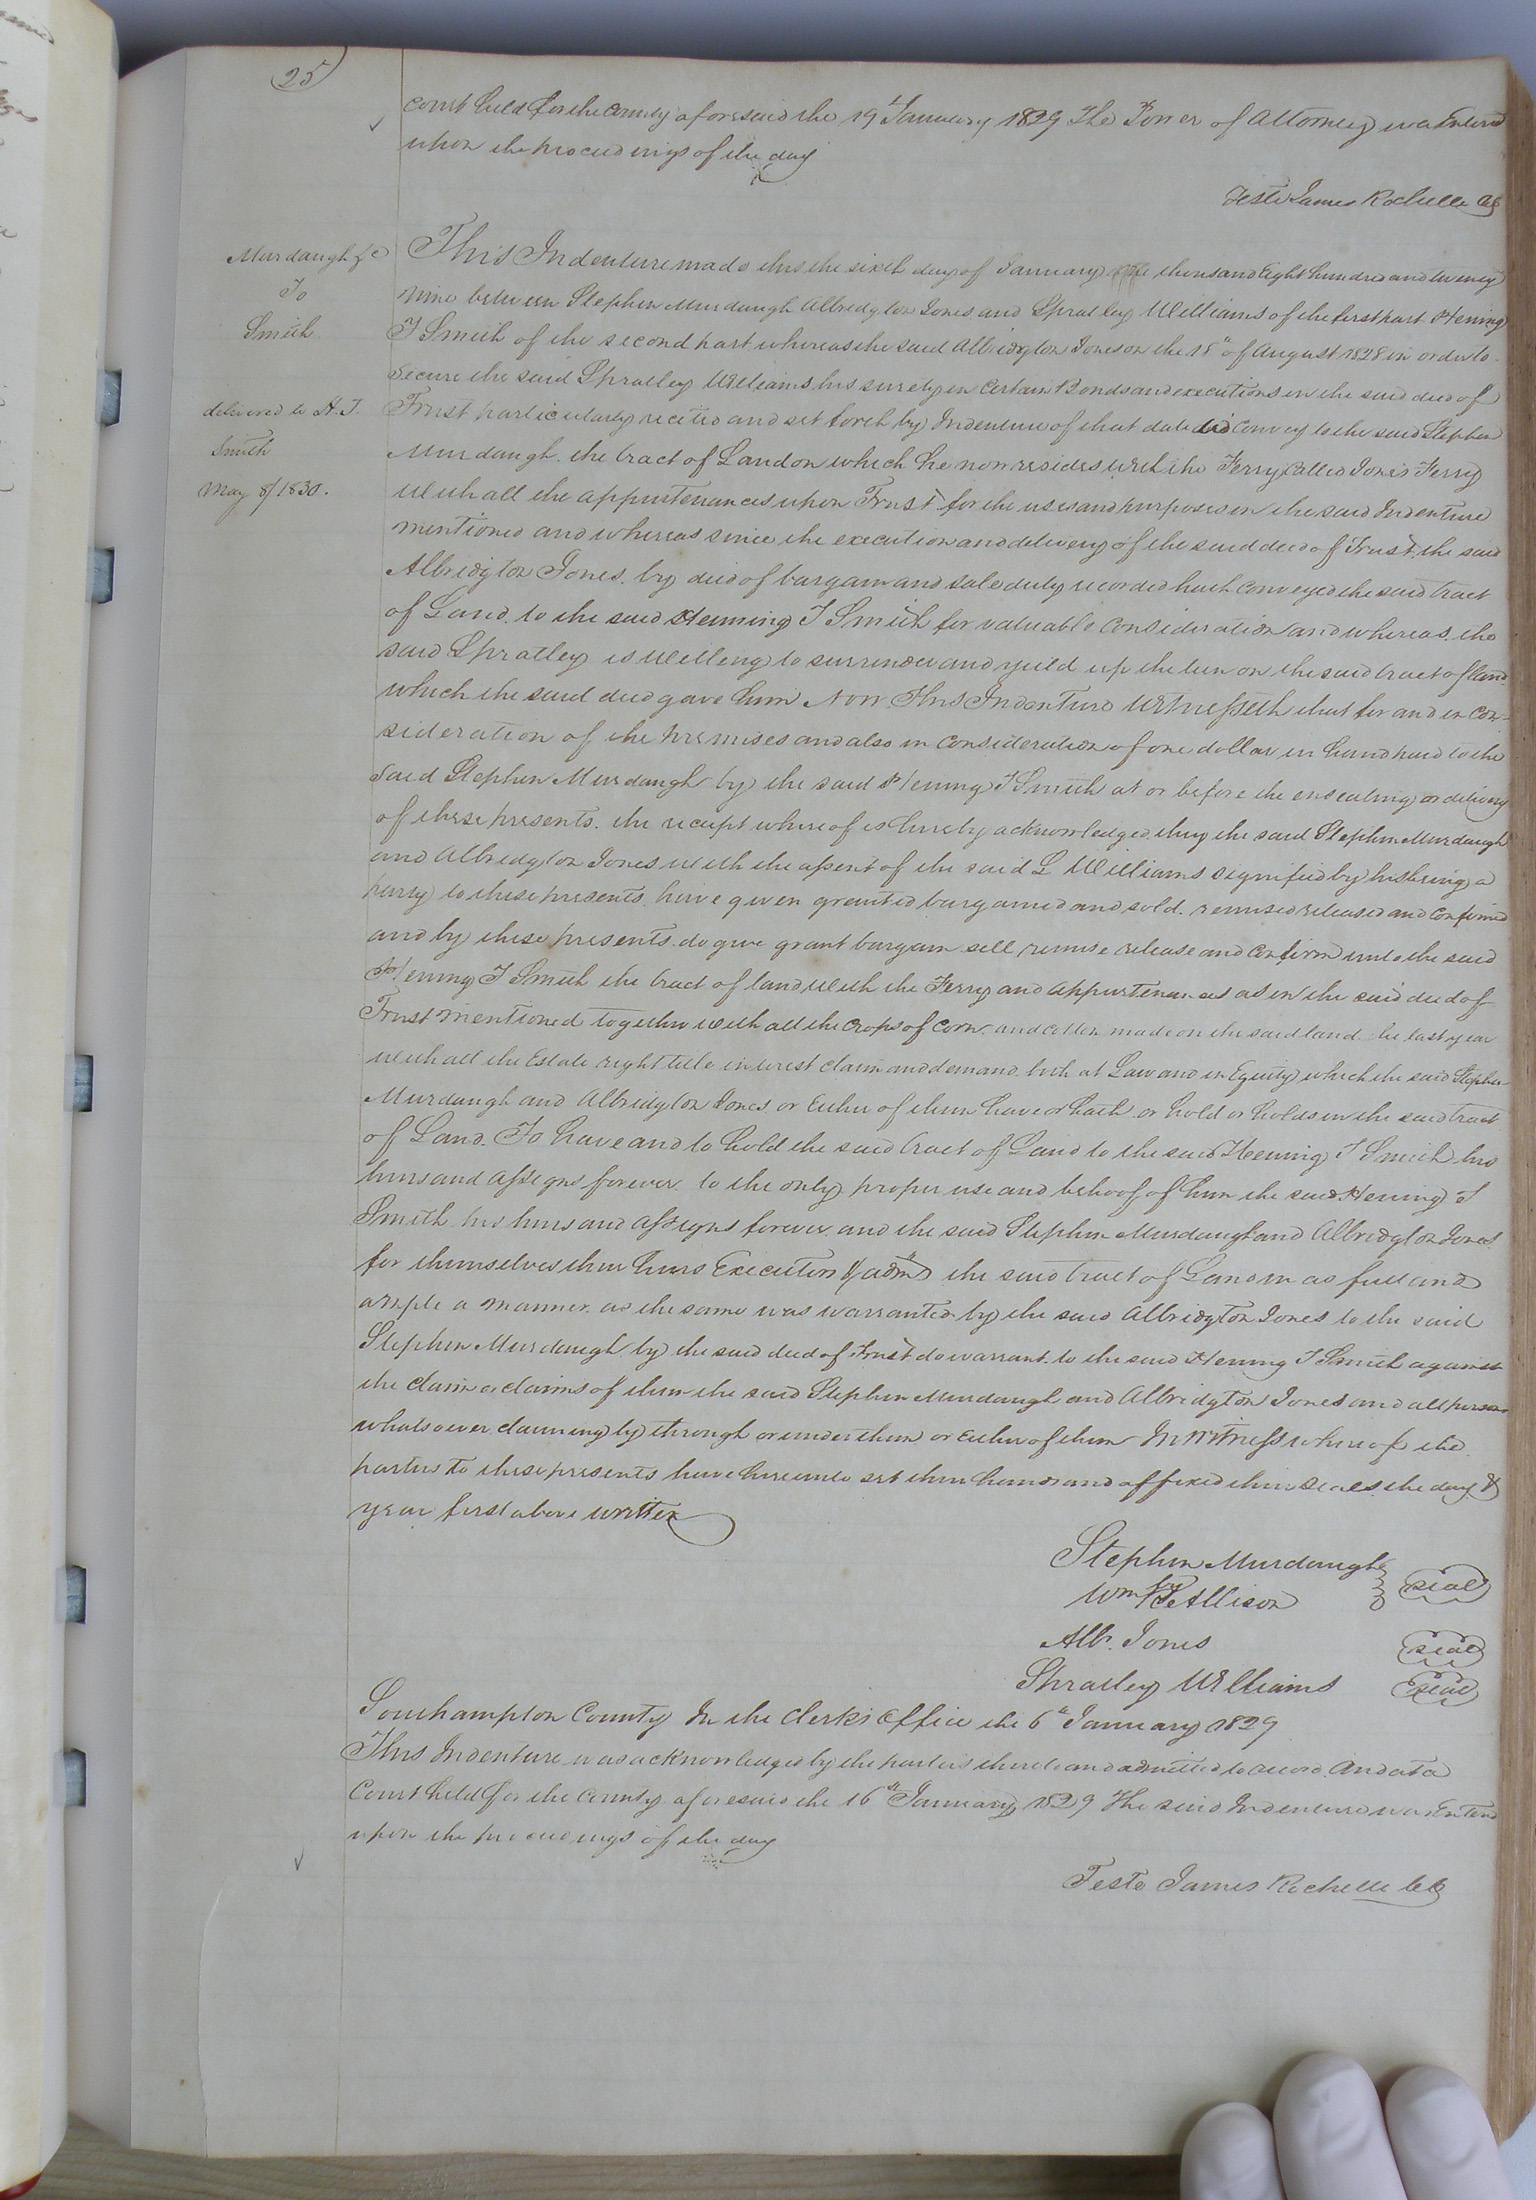 25
Court held for the County aforesaid the 19th January 1829 The Power of Attorney was Entered
upon the proceedings of the day
Teste James Rochelle CC
Murdaugh &c
To
Smith
delivered to H. J.
Smith
May 8/1830.
This Indenture made this the sixth day of January one thousand Eight hundred and twenty
nine between Stephen Murdaugh Albridgton Jones and Spratley Williams of the first part Henning
J Smith of the second part whereas the said Albridgton Jones on the 18th of August 1828 in order to
Secure the said Spratley Williams his surety in Certain Bonds and executions in the said deed of
Trust particularly recited and set forth by Indenture of that date did convey to the said Stephen
Murdaugh. the tract of Land on which he now resides with the Ferry Called Jones Ferry
With all the appurtenances upon Trust for the uses and purposes in the said Indenture
mentioned and whereas since the execution and delivery of the said deed of Trust, the said
Albridgton Jones. by deed of bargain and sale duly recorded hath conveyed the said tract
of Land. to the said Henning J Smith for valuable Consideration and whereas. the
said Spratley is Willing to surrender and yeild up the lien on the said tract of land
which the said deed gave him Now This Indenture Witnesseth that for and in Con-
sideration of the premises and also in Consideration of one dollar in hand paid to the
Said Stephen Murdaugh by the said Henning J Smith at or before the ensealing or delivery
of these presents. the receipt whereof is hereby acknowledged. they the said Stephen Murdaugh
and Albridgton Jones with the assent of the said S Williams signified by his being a
party to these presents. have given granted bargained and sold. remised released and Confirmed
and by these presents. do give grant bargain sell remise release and Confirm unto the said
Henning J Smith the tract of land with the Ferry and Appurtenances as in the said deed of
Trust mentioned together with all the Crops of Corn. and Cotton made on the said land the last year
with all the Estate right title interest claim and demand. both at Law and in Equity which the said Stephen
Murdaugh and Albridgton Jones. or Either of them have or hath. or hold or holds in the said tract
of Land. To have and to hold the said tract of Land to the said Henning J Smith his
heirs and Assigns forever. to the only proper use and behoof of him the said Henning J
Smith his heirs and Assigns forever. and the said Stephen Murdaugh and Albridgton Jones.
for themselves their heirs Executors & adms the said tract of Land in as full and
ample a manner. as the same was warranted by the said Albridgton Jones to the said
Stephen Murdaugh by the said deed of Trust do warrant. to the said Henning J Smith against
the claim or claims of them the said Stephen Murdaugh and Albridgton Jones and all persons
whatsoever claiming by through or under them or Either of them In Witness whereof the
parties to these presents have hereunto set their hands and affixed their seals the day &
year first above written
Stephen Murdaugh
by
Wm B Allison seal
Alb. Jones seal
Spratley Williams seal
Southampton County In the Clerk's Office the 6th January 1829
This Indenture was acknowledged by the parties thereto and admitted to record. And at a
Court held for the County aforesaid the 16th January 1829 The said Indenture was Entered
upon the proceedings of the day
Teste James Rochelle CC